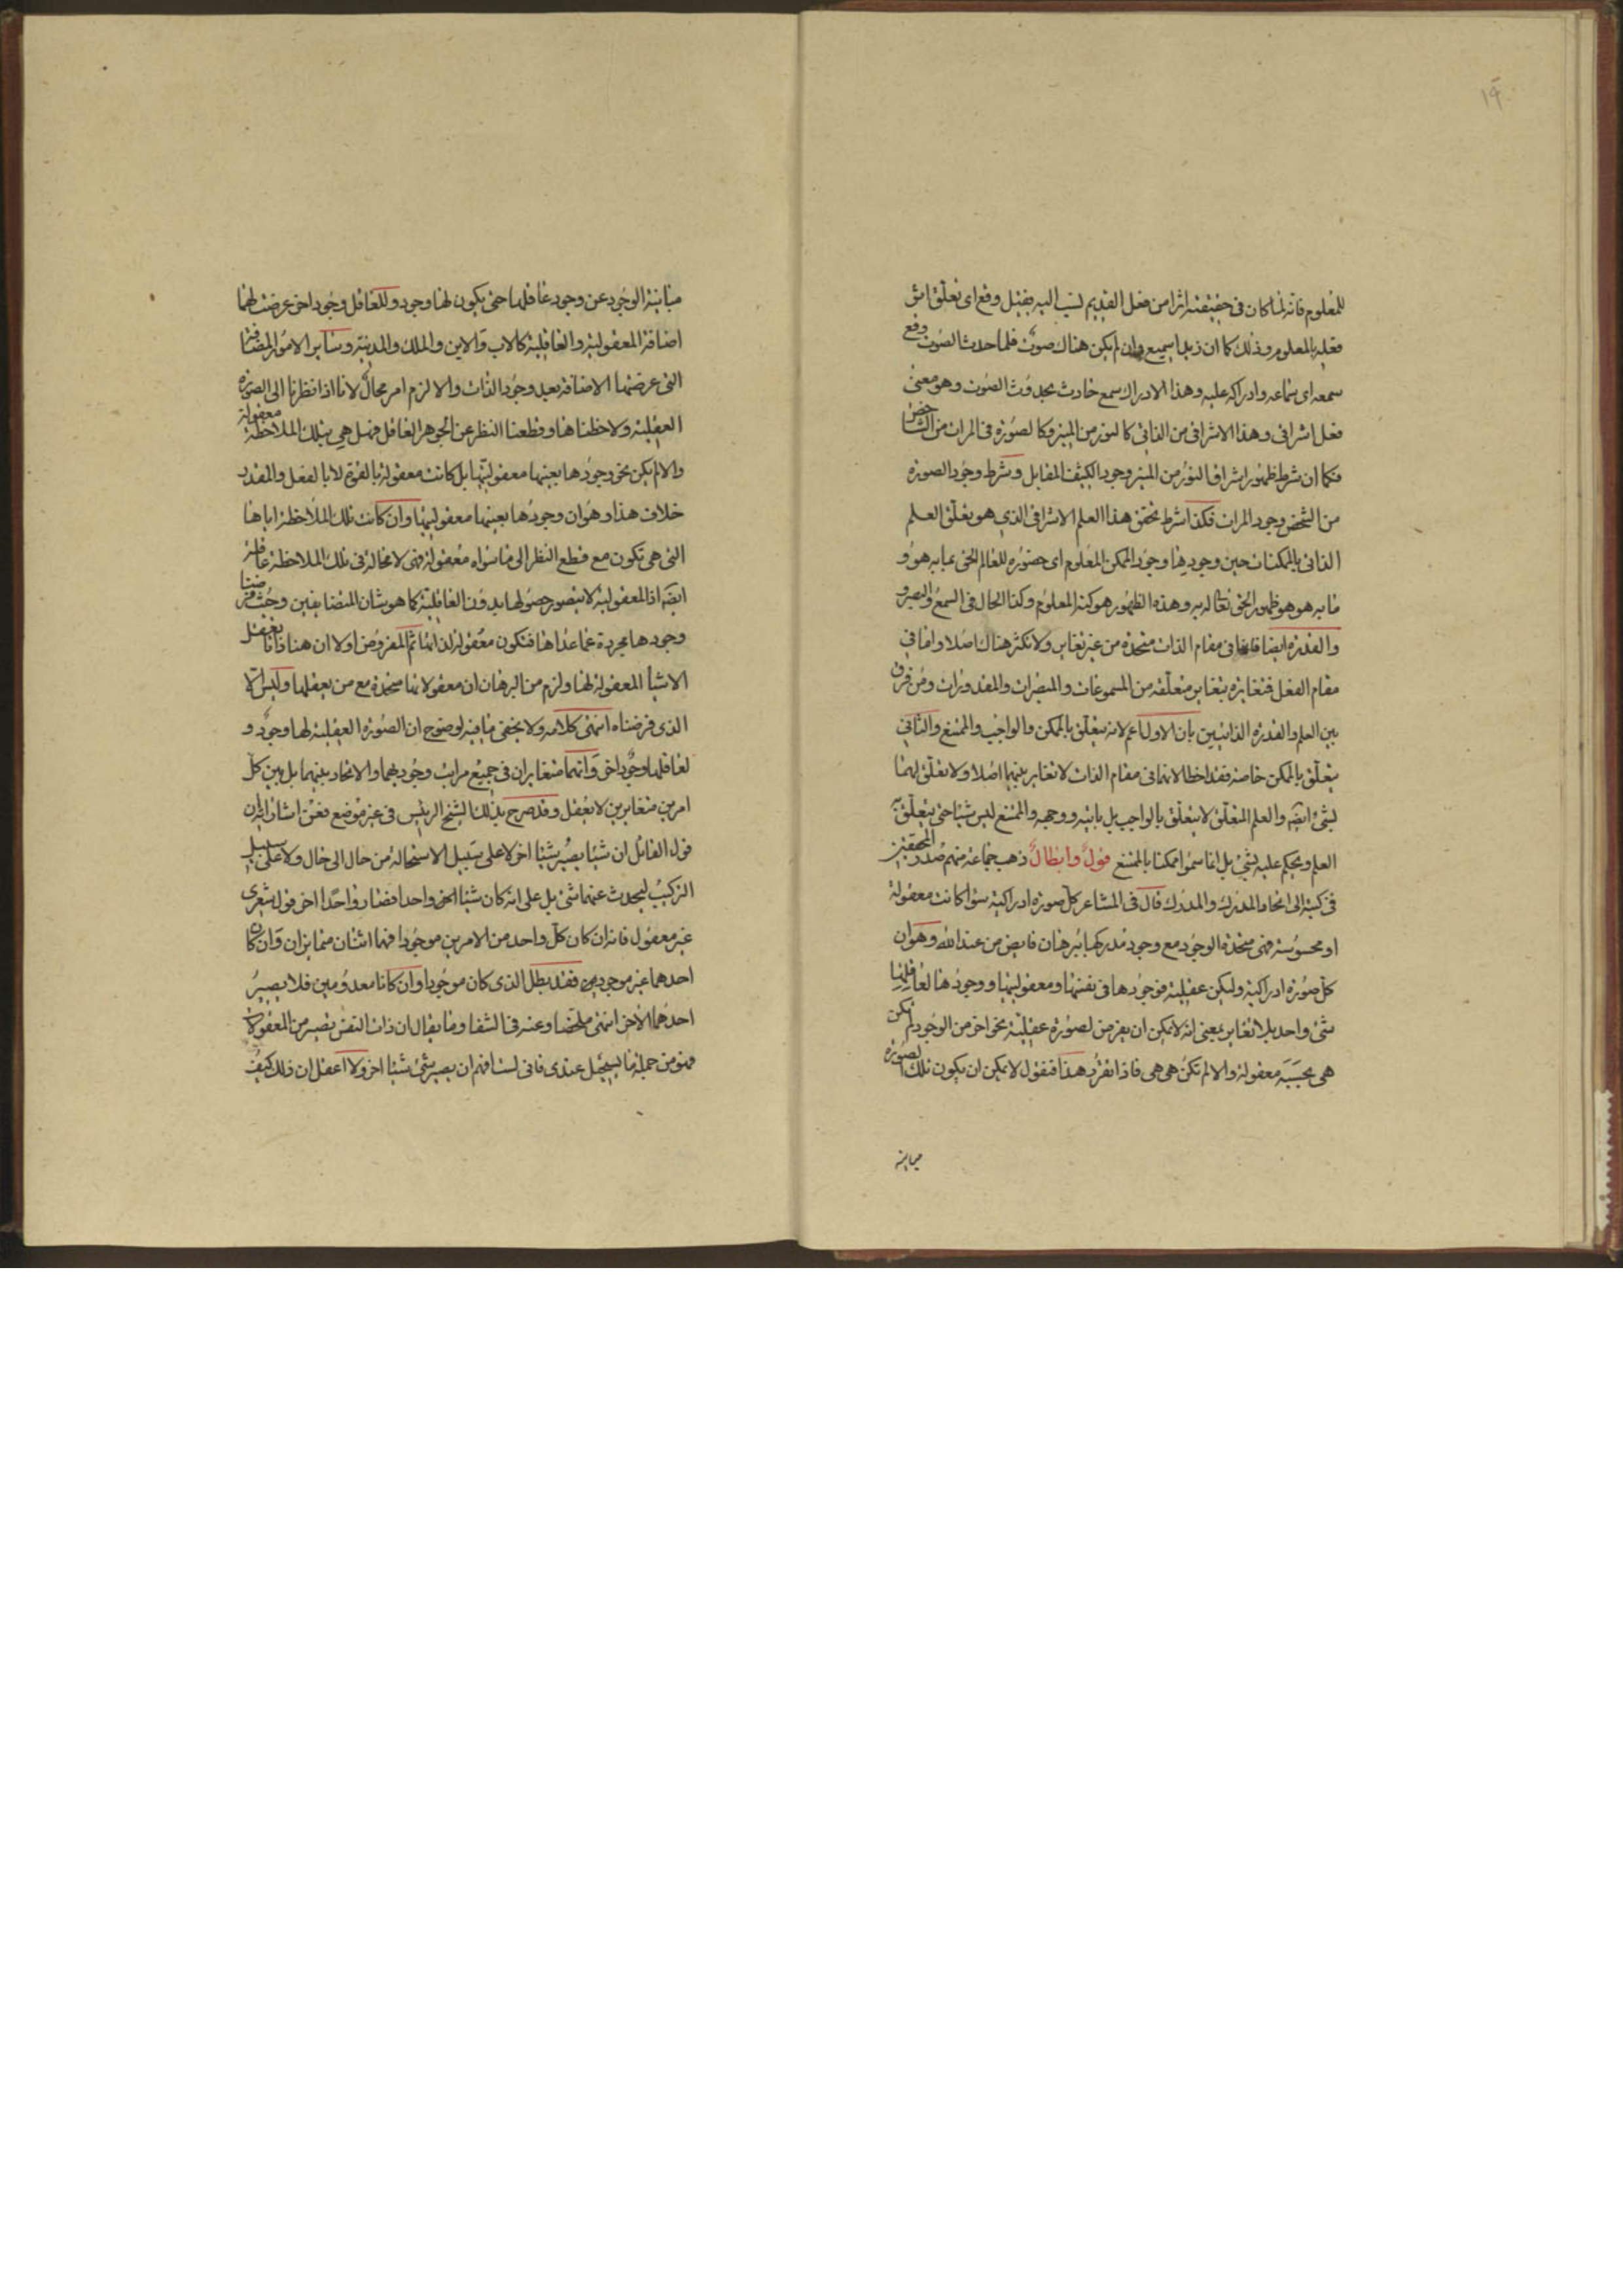 ١٩
للمعلوم فانه لما كان في حقيقته اثرا من فعل القديم نسب اليه فقيل وقع اى تعلق اثر
فعله بالمعلوم وذلك كما ان زيدا سميع وان لم يكن هناك صوت فلما حدث الصوت وقع
سمعه اى سماعه وادراكه عليه وهذا الادراك سمع حادث بحدوث الصوت وهو معنى
فعل اشراقى وهذا الاشراق من الذاتى كالنور من المنير وكالصورة فى المرات من الشاخص
فكما ان شرط ظهور اشراق النور من المنير وجود الكثيف المقابل وشرط وجود الصورة
من الشخص وجود المرات فكذا شرط تحقق هذا العلم الاشراقى الذي هو تعلق العلم
الذاتى بالممكنات حين وجودها وجود الممكن المعلوم اى حضوره للعالم الحق بما به هو و
ما به هو هو ظهور الحق تعالى به وهذا الظهور هو كنه المعلوم وكذا الحال فى السمع والبصر و
والقدرة ايضا فانها فى مقام الذات متحدة من غير تغاير ولا تكثر هناك اصلا واما فى
مقام الفعل فتغايره بتغاير متعلقه من المسموعات والمبصرات والمقدورات ومن فرق
بين العلم والقدرة الذاتيين بان الاول اعم لانه يتعلق بالممكن والواجب والممتنع والثانى
يتعلق بالممكن خاصة فقد اخطا لانهما فى مقام الذات لا تغاير بينهما اصلا ولا تعلق لهما
بشئ ايضه والعلم المتعلق لا يتعلق بالواجب بل بايته ووجهه والممتنع ليس شيئا حتى يتعلق به
العلم ويحكم عليه بشئ بل انما سموا ممكنا بالممتنع قول وابطال ذهب جماعة منهم صدر المحققين
فى كتبه الى اتحاد المدرك والمدرك قال فى المشاعر كل صورة ادراكية سواء كانت معقولة
او محسوسة فهى متحدة الوجود مع وجود مدركها ببرهان فايض من عند الله وهو ان
كل صورة ادراكية ولتكن عقلية فوجودها فى نفسها ومعقوليتها ووجودها لعاقلها
شئ واحد بلا تغاير بمعنى انه لا يمكن ان يفرض لصورة عقلية نحو اخر من الوجود لم تكن
هى بحسبه معقولة والا لم تكن هى هى فاذا تقرر هذا فنقول لا يمكن ان يكون تلك الصورة
مباينة
مباينة الوجود عن وجود عاقلها حتى يكون لها وجود وللعاقل وجود اخر عرضت لهما
اضافة المعقولية والعاقلية كالاب والابن والملك والمدينة وساير الامور المضافة
التى عرضتها الاضافة بعد وجود الذات والا لزم امر محال لانا اذا نظرنا الى الصورة
العقلية ولاحظناها وقطعنا النظر عن الجوهر العاقل فهل هي بتلك الملاحظة معقولة
والا لم يكن نحو وجودها بعينها معقوليتها بل كانت معقولة بالقوة لا بالفعل والمقدر
خلاف هذا وهو ان وجودها بعينها معقوليتها وان كانت تلك الملاحظة اياها
التى هى تكون مع قطع النظر الى ما سواه معقولة فهى لا محالة فى تلك الملاحظة عاقلة
ايضه اذ المعقولية لا يتصور حصولها بدون العاقلية كما هو شان المتضايفين وحيث فرضنا
وجودها مجردة عما عداها فتكون معقولة لذاتها ثم المفروض اولا ان هنا ذاتا تعقل
الاشياء المعقولة لها ولزم من البرهان ان معقولاتها متحدة مع من يعقلها وليس الا
الذى فرضناه انتهى كلامه ولا يخفى ما فيه لوضوح ان الصورة العقلية لها وجود و
لعاقلها وجود اخر وانهما متغايران فى جميع مراتب وجودهما والاتحاد بينهما بل بين كل
امرين متغايرين لا يعقل وقد صرح بذلك الشيخ الرئيس فى غير موضع فعن اشاراته ان
قول القائل ان شيئا يصير شيئا اخر لا على سبيل الاستحالة من حال الى حال ولا على سبيل
التركيب ليحدث عنهما شئ بل على انه كان شيئا اخر واحدا فصار واحدا اخر قول شعرى
غير معقول فانه ان كان كل واحد من الامرين موجودا فهما اثنان متمايزان وان كان
احدهما غير موجود فقد بطل الذى كان موجودا وان كانا معدومين فلا يصير
احدهما الاخر انتهى ملخصا وعنه فى الشفا وما يقال ان ذات النفس يصير من المعقولات
فهو من جملة ما يستحيل عندى فانى لست افهم ان يصير شئ شيئا اخر ولا اعقل ان ذلك كيف